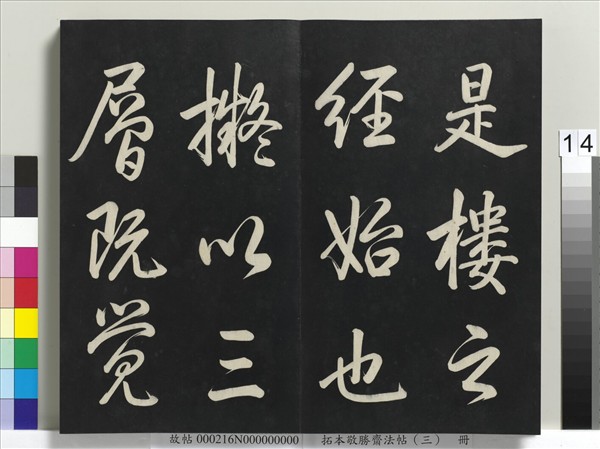 是樓之
經始也
擬以三
層既覺
14
故帖 000216N000000000 拓本敬勝齋法帖（三） 冊